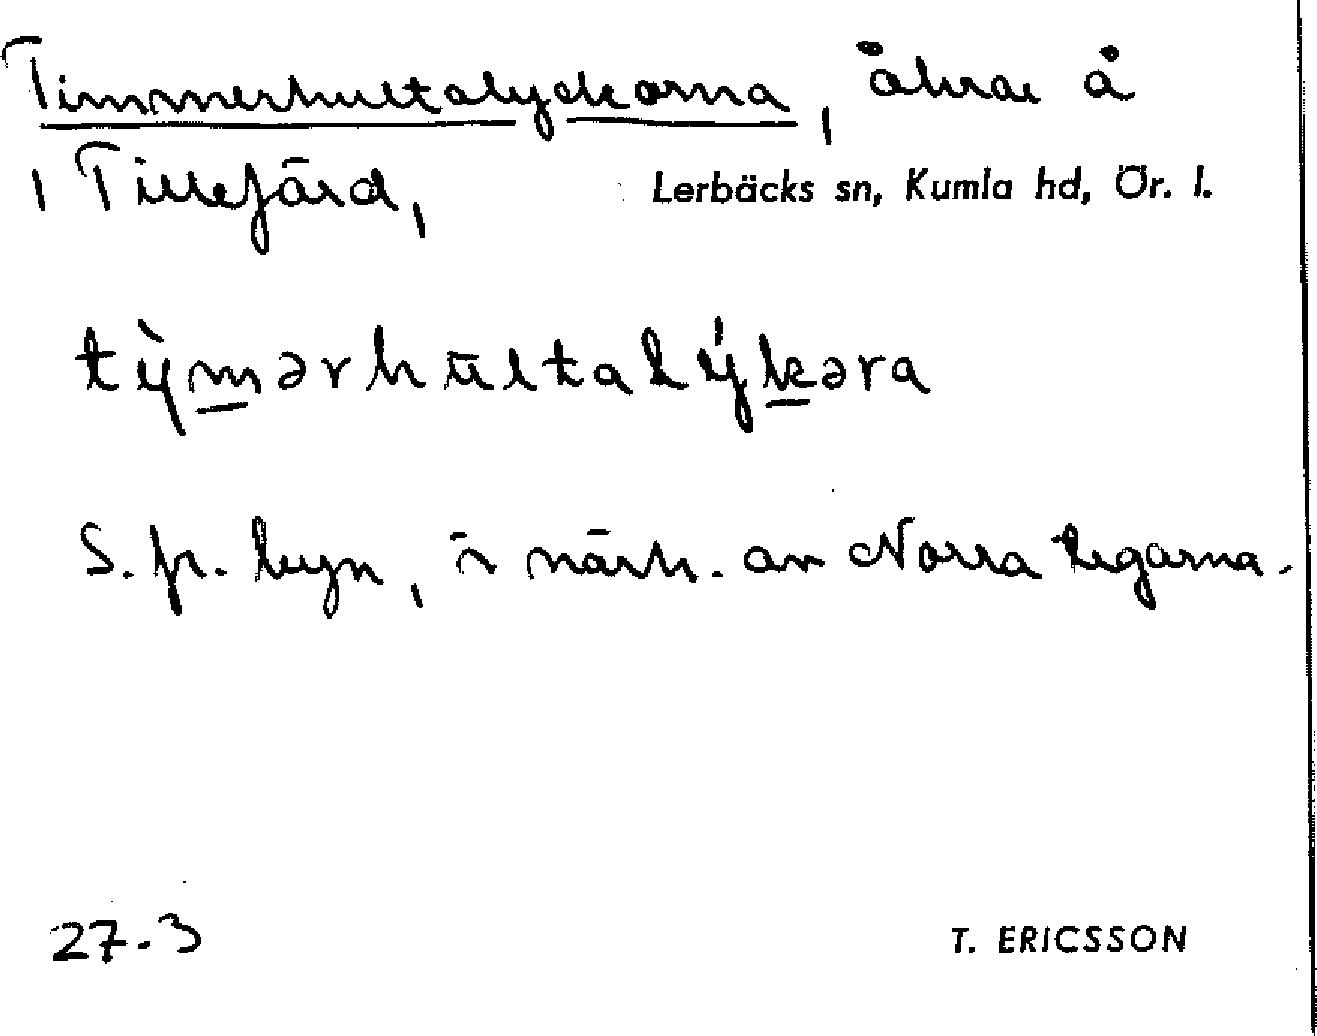 Timmerhultalyckorna, åkrar å
Tillefärd, Lerbäcks sn, Kumla hd, Ör. l.
tỳm̲ərhūltalýk̲əra
S. fr. byn, i närh. av Norra tegarna.
27.3 T. ERICSSON